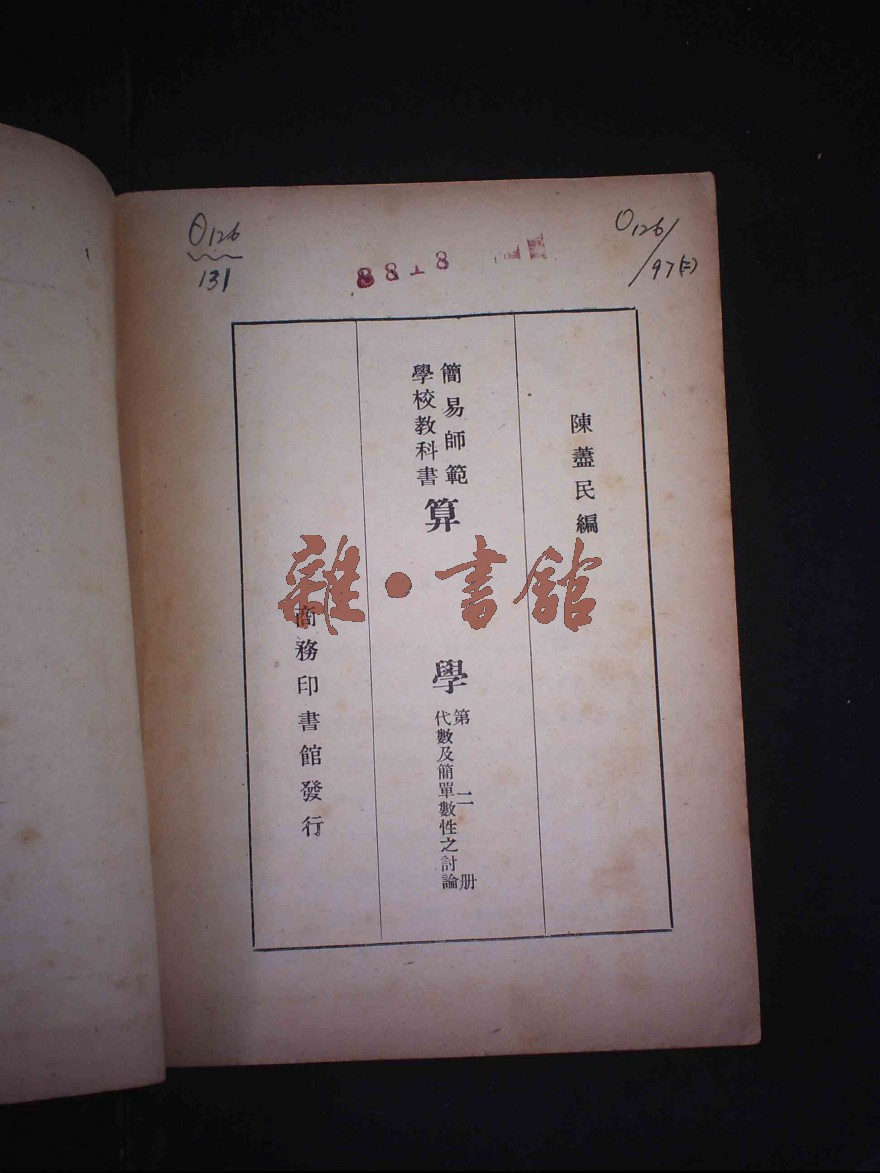 O126
131
8818
O126/97(二)
陳藎民編
簡易師範
學校教科書
算學
第二册
代數及簡單數性之討論
商務印書館發行
雜·書館